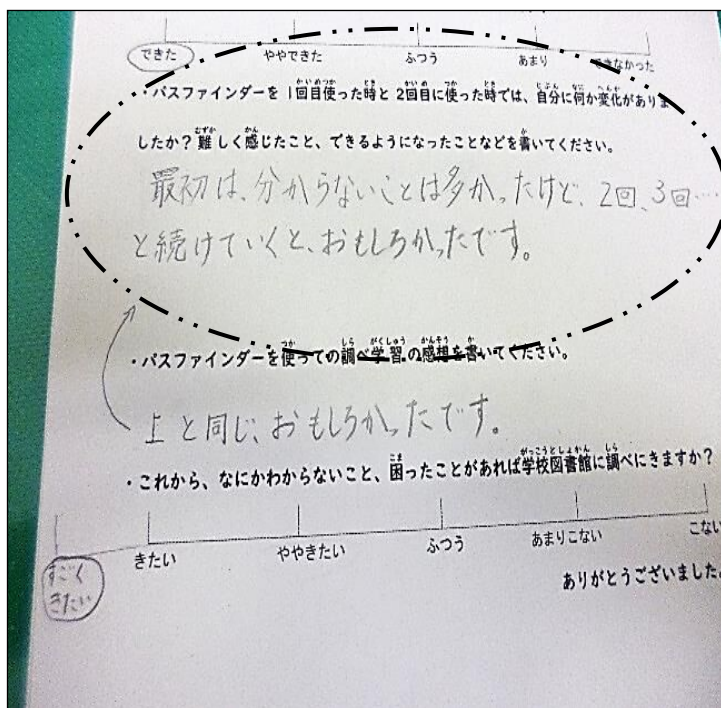 できた ややできた ふつう あまり できなかった
・パスファインダーを1回目使った時と2回目に使った時では、自分に何か変化がありま
したか？難しく感じたこと、できるようになったことなどを書いてください。
最初は、分からないことは多かったけど、2回、3回…
と続けていくと、おもしろかったです。
・パスファインダーを使っての調べ学習の感想を書いてください。
上と同じ、おもしろかったです。
・これから、なにかわからないこと、困ったことがあれば学校図書館に調べにきますか？
すごくきたい きたい ややきたい ふつう あまりこない こない
ありがとうございました。